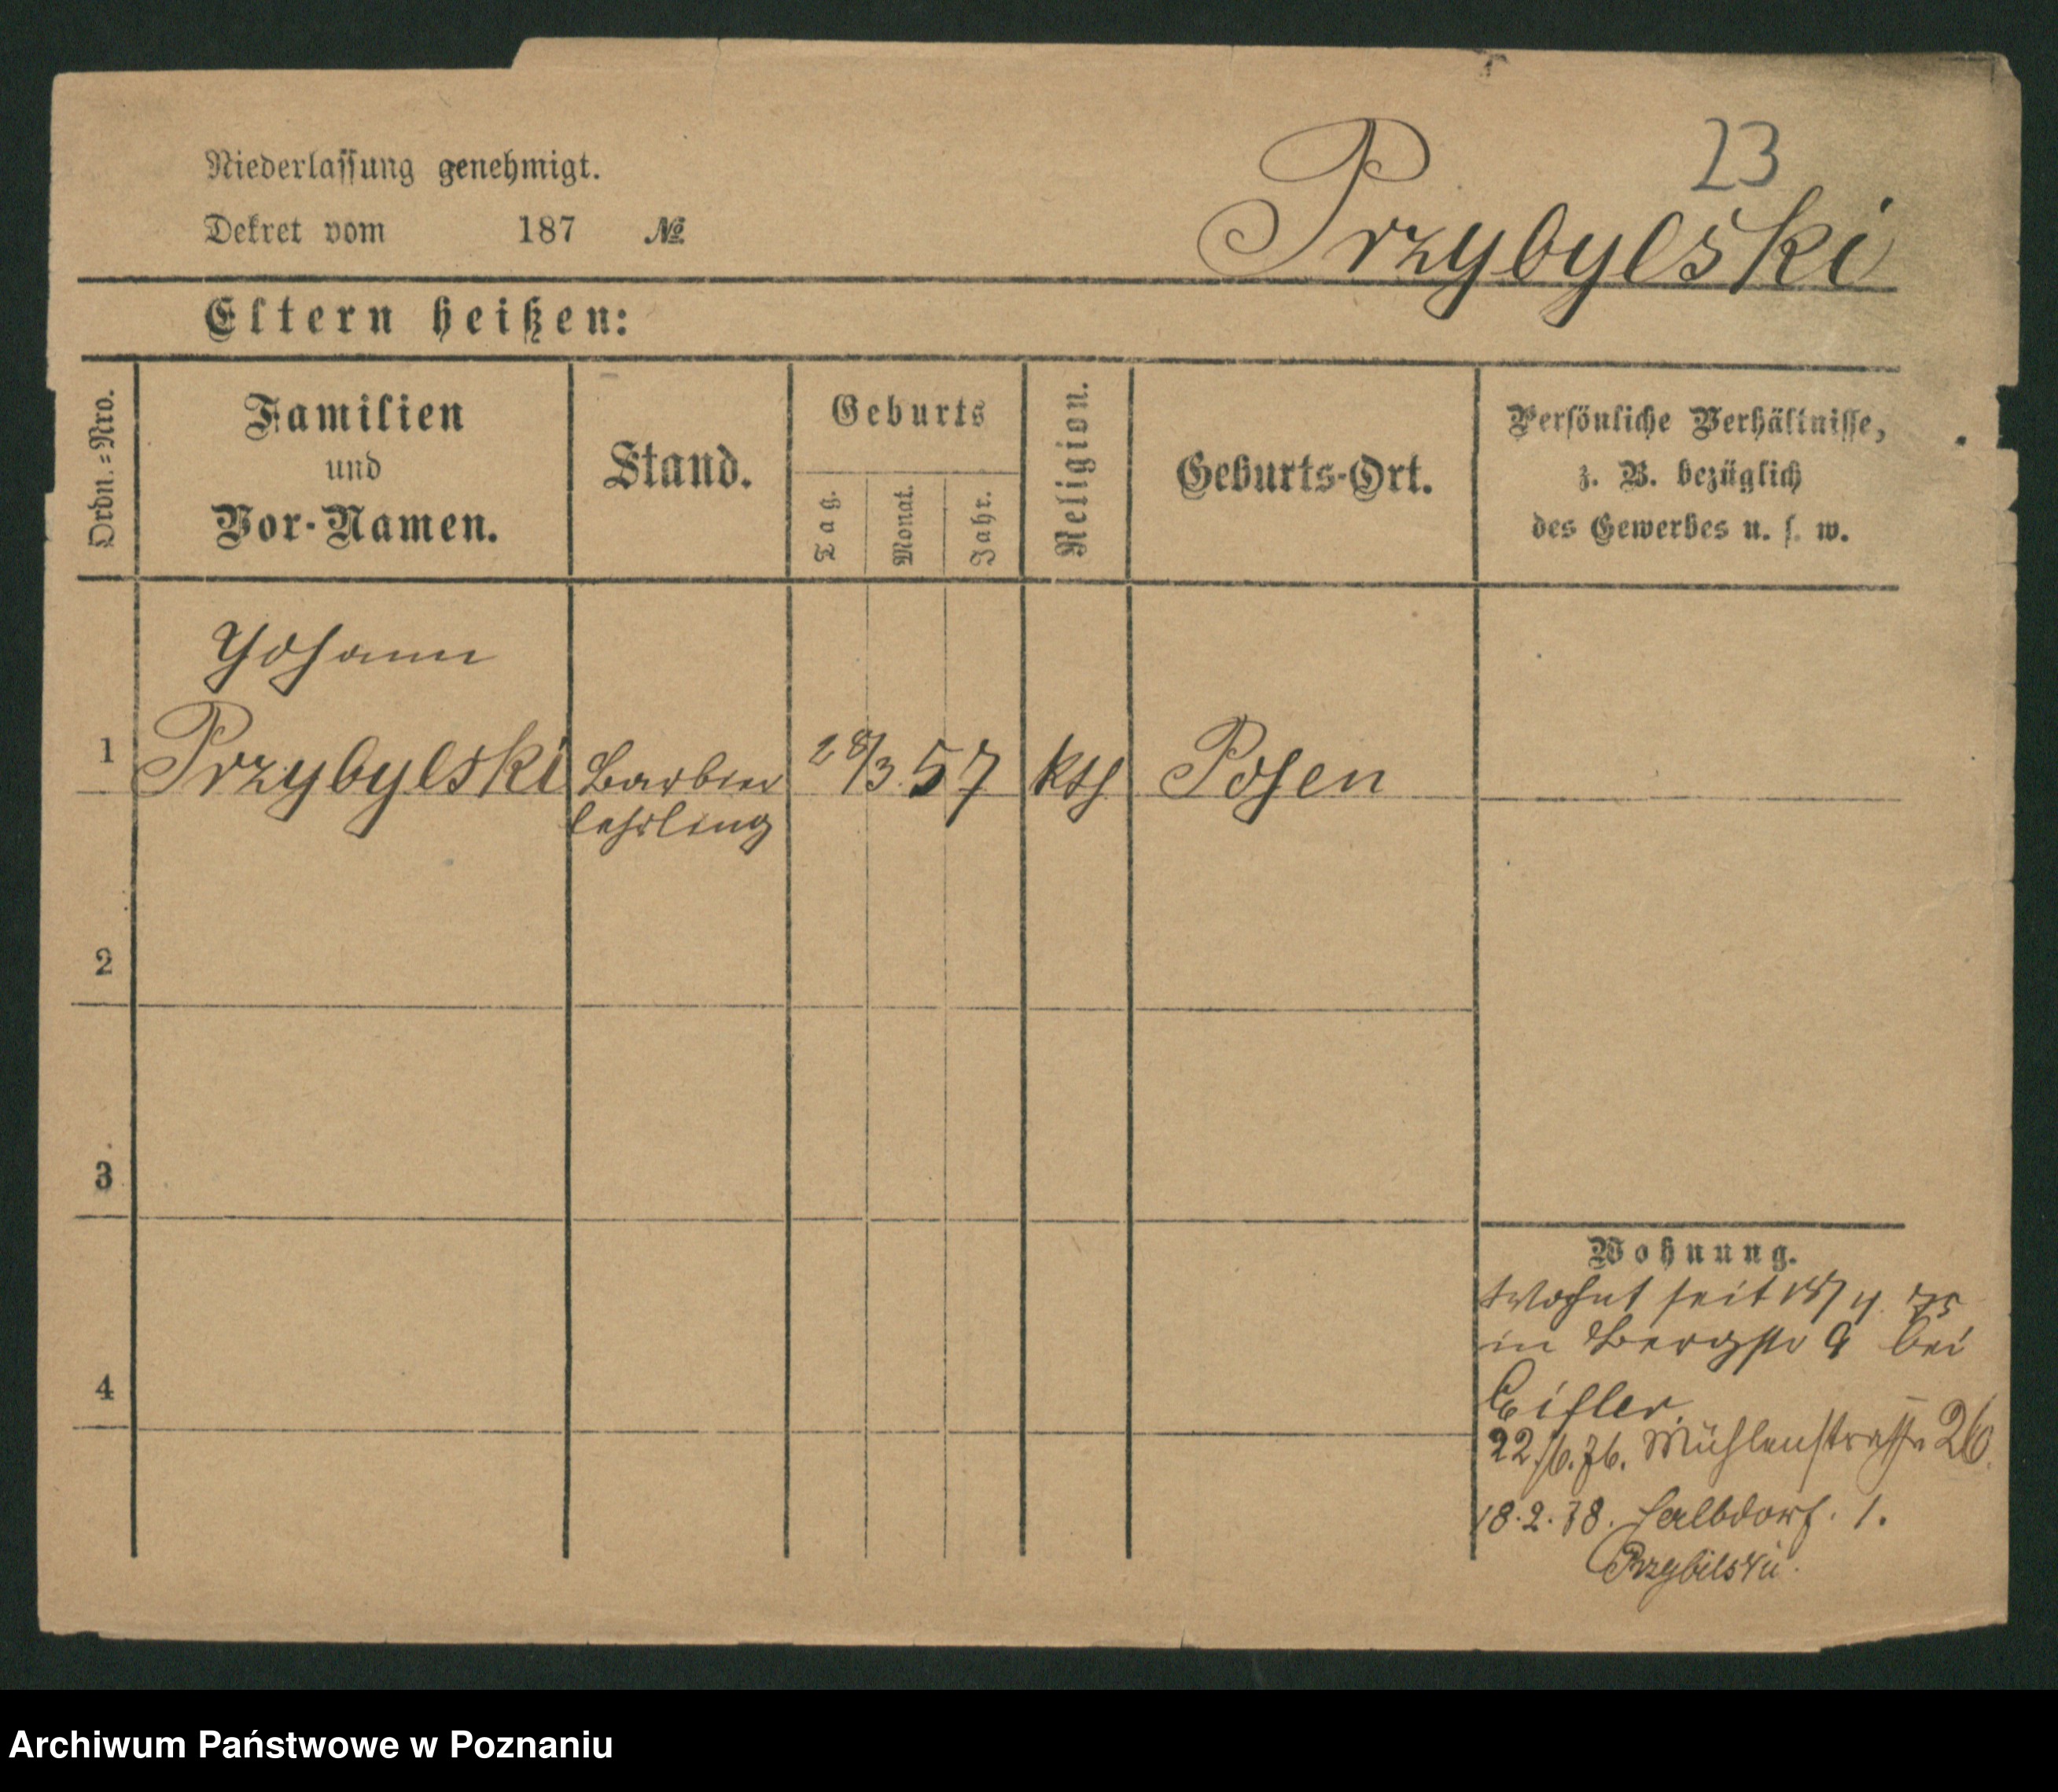 23
Niederlassung genehmigt.
Dekret vom 187 №
Przybylski
Eltern heißen:
Ordn.=Nro.
Familien
und
Vor-Namen.
Stand.
Geburts
Tag.
Monat.
Jahr.
Religion.
Geburts-Ort.
Persönliche Verhältnisse,
z. B. bezüglich
des Gewerbes u. s. w.
Johann
1 Przybylski Barbier 28/3. 57 kth Posen
lehrling
2
3
Wohnung.
wohnt seit 18/4. 75
in Bergstr 9 bei
4
22./6.76. Mühlenstrasse 26.
18.2.78. Halbdorf. 1.
Przybilski.
Archiwum Państwowe w Poznaniu